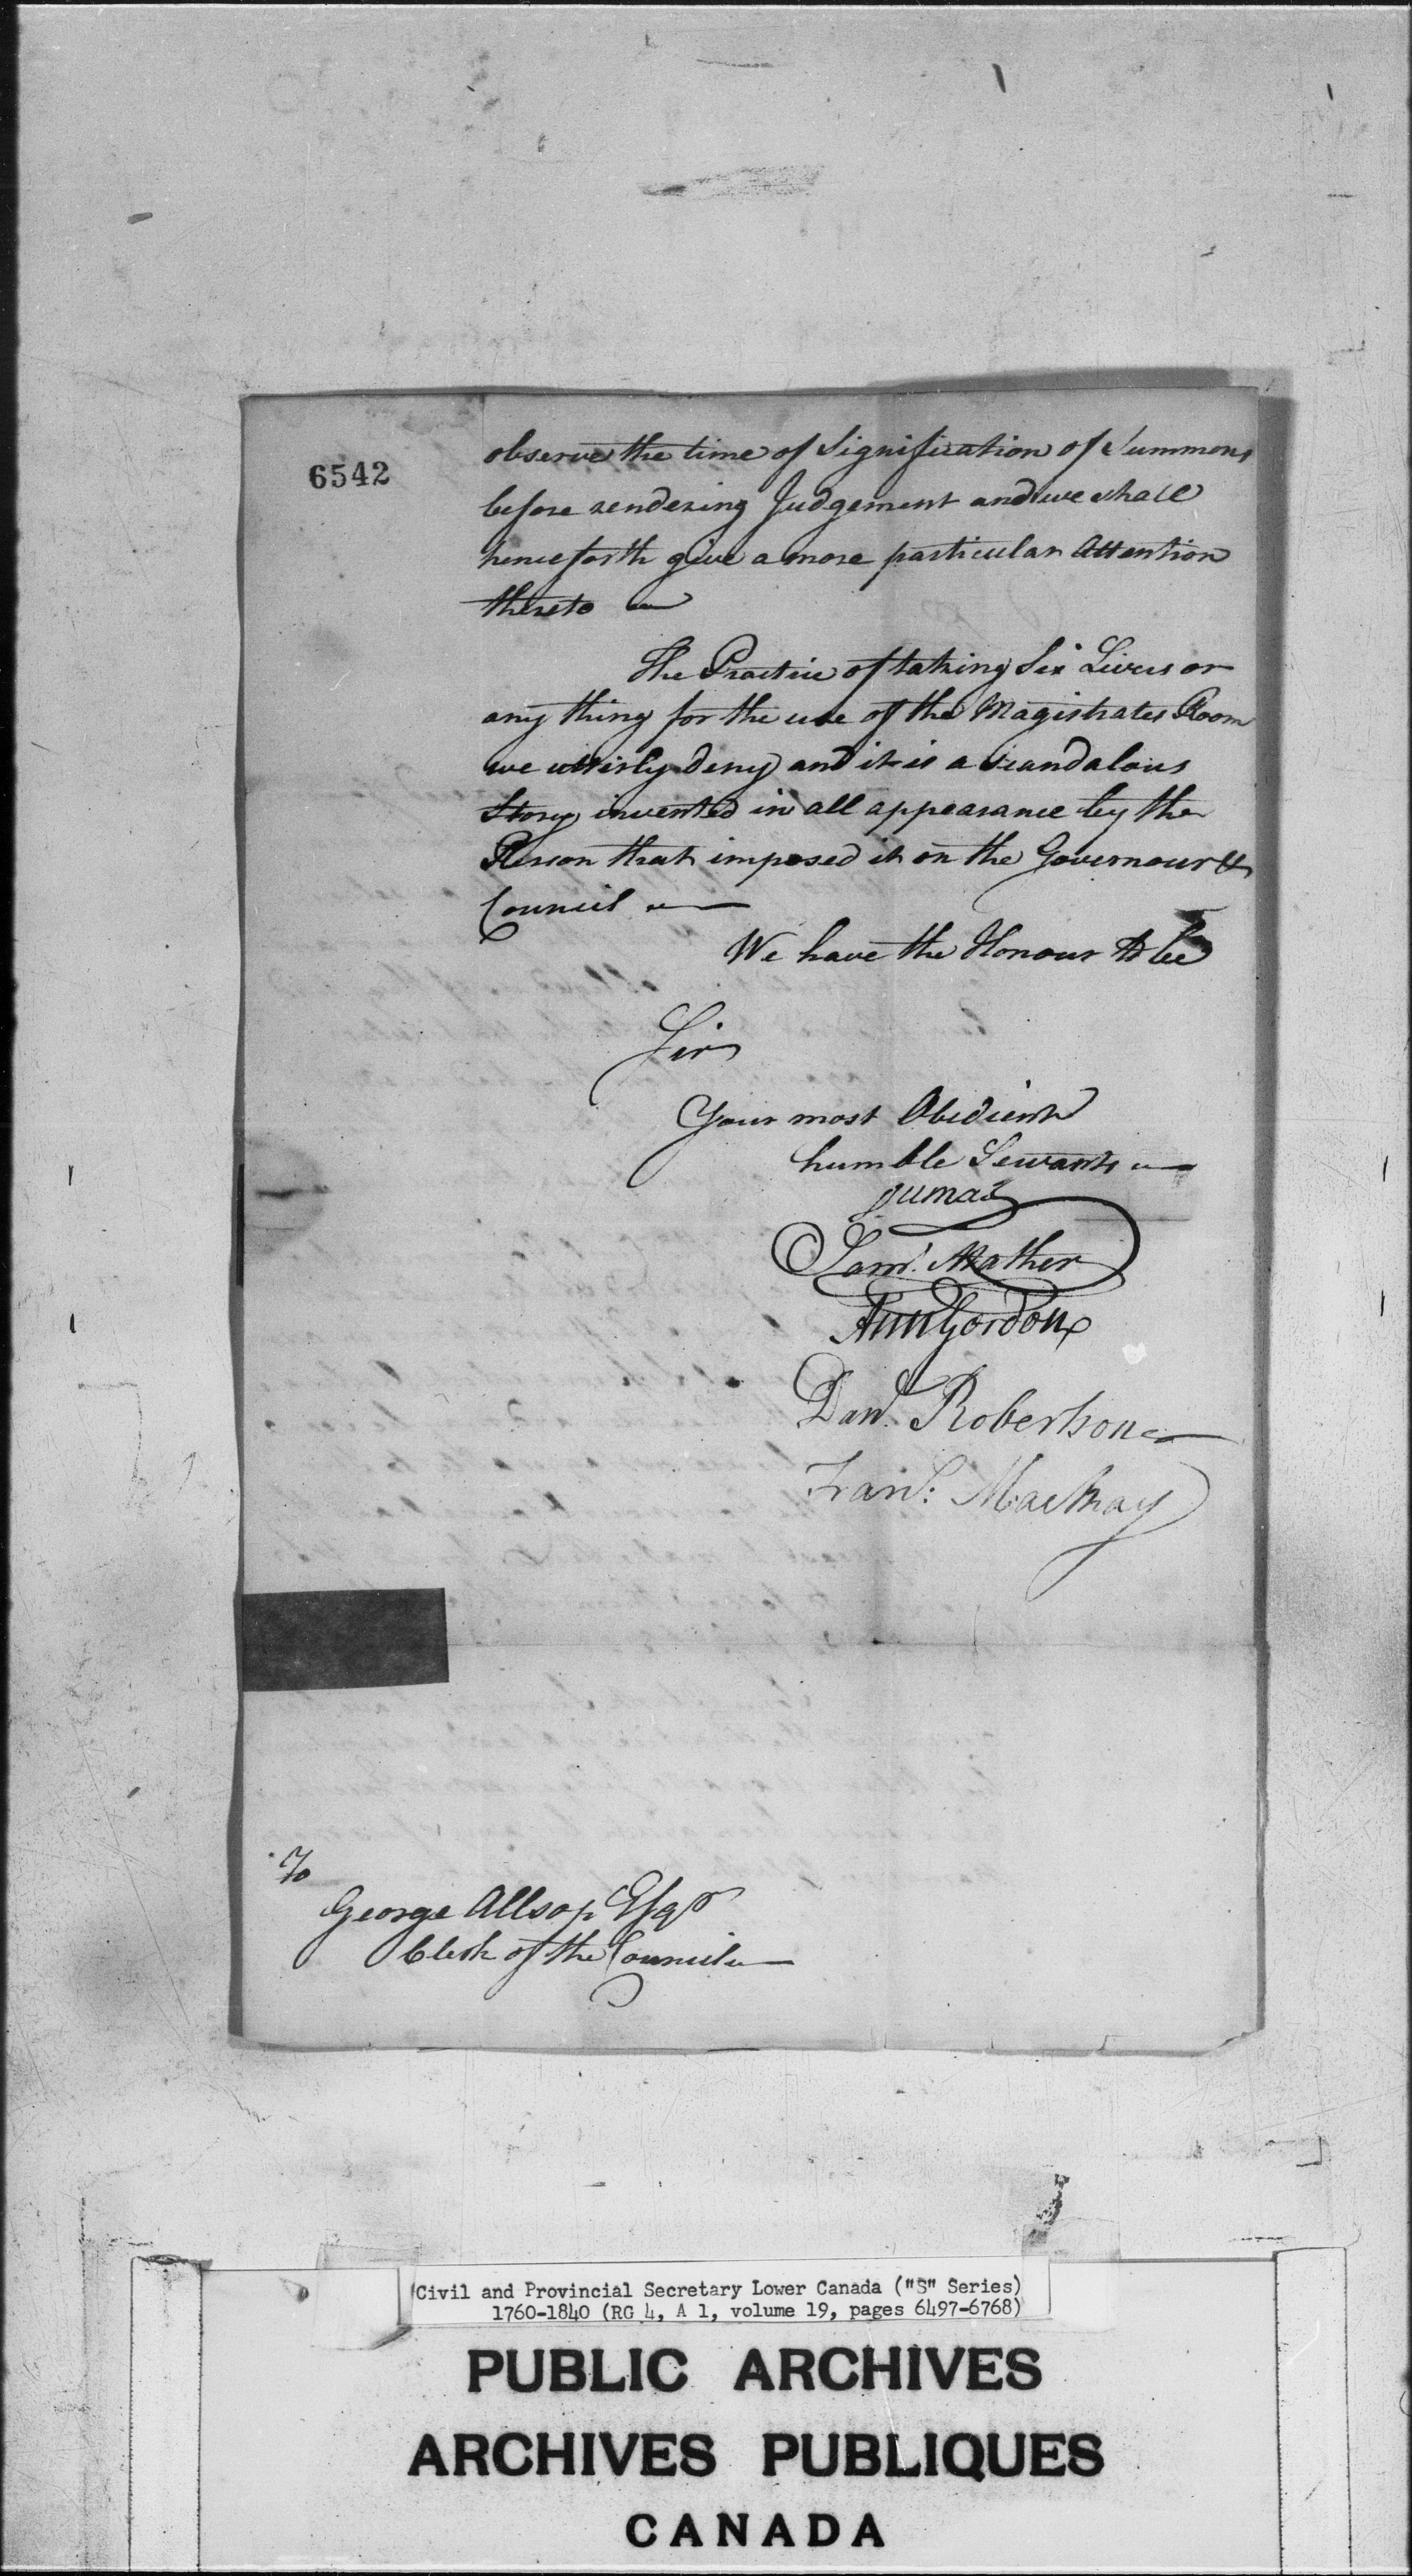 6542
observe the time of Signification of Summons
before rendering Judgement and we shall
henceforth give a more particular Attention
thereto
The Practice of taking Six Livres or
any thing for the use of the Magistrates Room
we utterly deny and it is a scandalous
Story invented in all appearance by the
Person that imposed it on the Governour &
Council
We have the Honour to be
Sir
Your most Obedient
humble Servants
Dumas
Saml. Mather
Gordon
Danl. Robertson
Frans: Mackay
To
George Allsop Esqr
Clerk of the Council
Civil and Provincial Secretary Lower Canada ("S" Series)
1760-1840 (RG 4, A 1, volume 19, pages 6497-6768)
PUBLIC ARCHIVES
ARCHIVES PUBLIQUES
CANADA